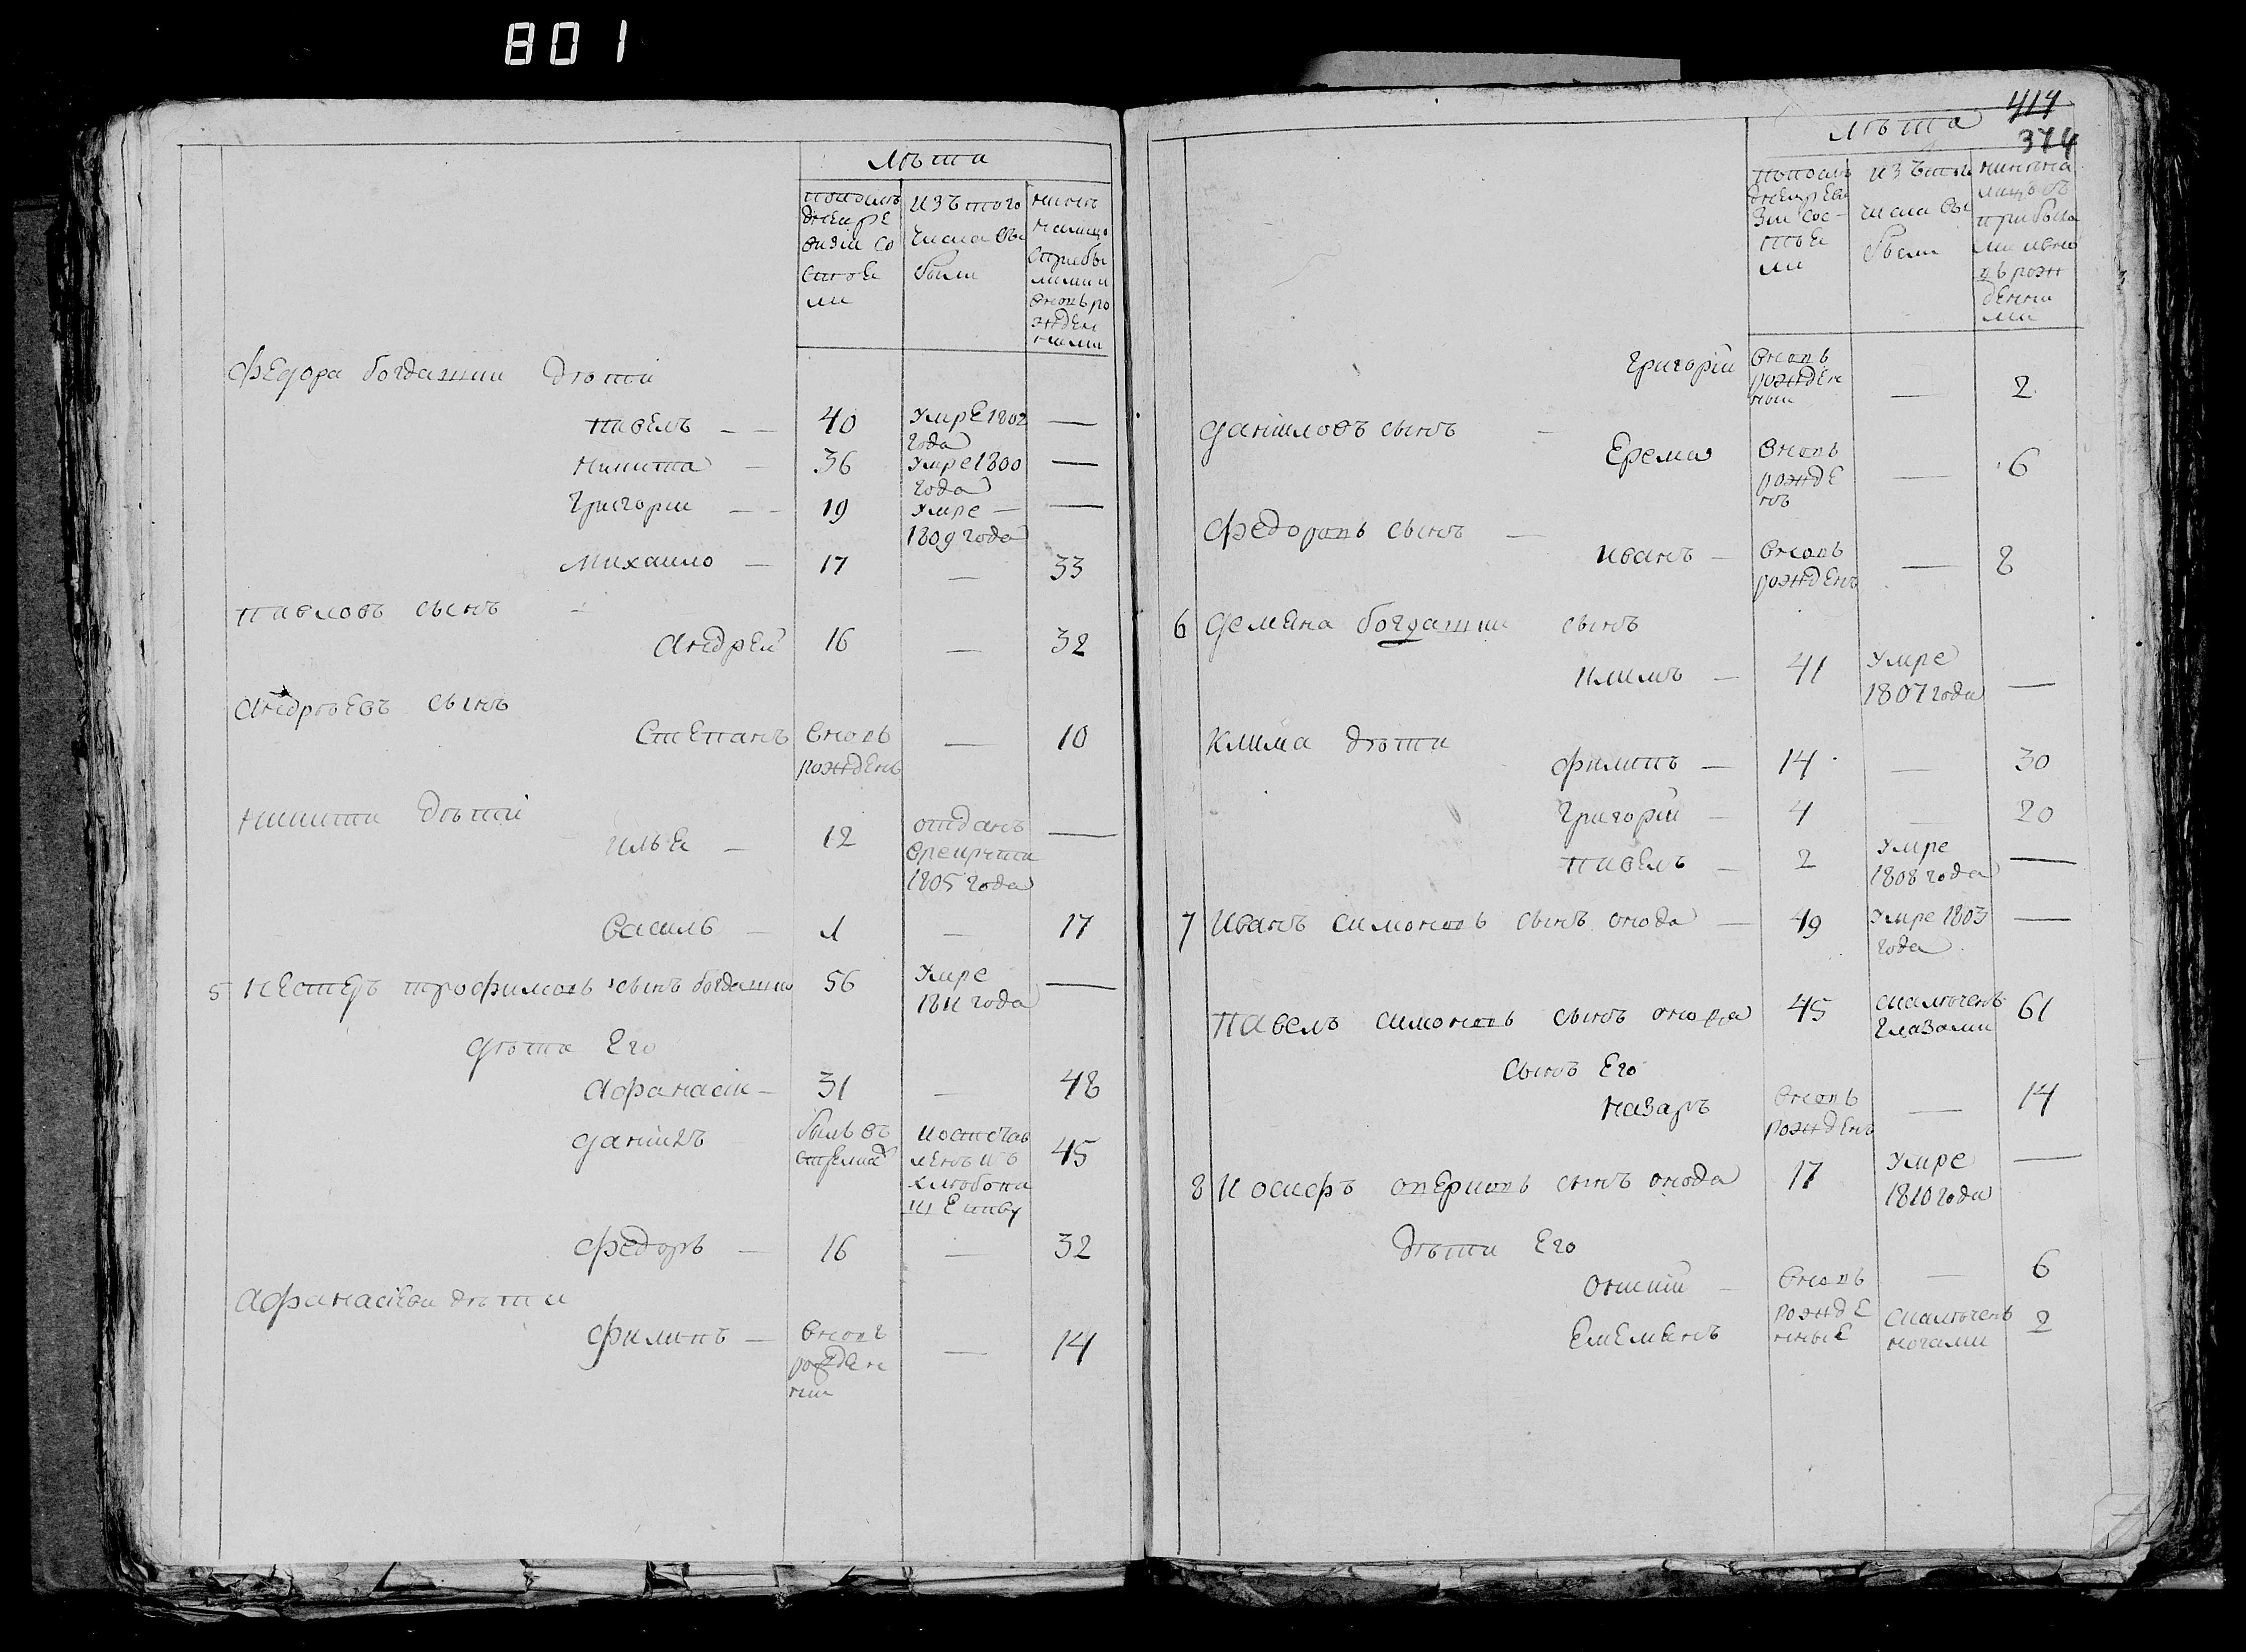 801
лѣта
попослѣ
дней ре
визіи со
стояли
изъ того
числа вы
были
ныне
налицо
сприбы
лыми и
вновь ро
жден
ными
Федора богдашки дѣти
павелъ — — 40 умре 1802 года —
никита — 36 умре 1800 года —
Григорий — — 19 умре — 1809 года —
михаило — 17 — 33
павловъ сынъ —
андрей 16 — 32
андрѣевъ сынъ
Степанъ вновь рожденъ — 10
никиты дѣти
илья — 12 отданъ врекруты 1805 года —
василь — 1 — 17
5 нестеръ трофимовъ сынъ богдашка 56 умре 1811 года —
дѣти его
афанасій — 31 — 48
данилъ былъ въ 45
федоръ — 16 — 32
афанасьевы дѣти
филипъ — вновь рожден ный — 14
414
374
лѣта
попослѣ
дней реви
зіи сос-
тоя
ли
изъ того
числа вы
были
ныне на
лицо съ
прибы
ми и вно
въ рож
денны
ми
Григорій вновь рожден ный — 2
даниловъ сынъ —
Ерема вновь рожде нъ — 6
Федоровъ сынъ —
иванъ — вновь рожденъ — 8
6 демьяна богдашки сынъ
климъ — 41 умре 1807 года —
клима дѣти
филипъ — 14 — 30
Григорій — 4 — 20
павелъ — 2 умре 1808 года —
7 иванъ симоновъ сынъ — 49 умре 1803 года —
павелъ симоновъ сынъ 45 глазами 61
сынъ его
назаръ вновь рожденъ — 14
8 иосифъ сынъ 17 умре 1810 года —
дѣти его
вновь — 6
Емельянъ рожде нные ногами 2